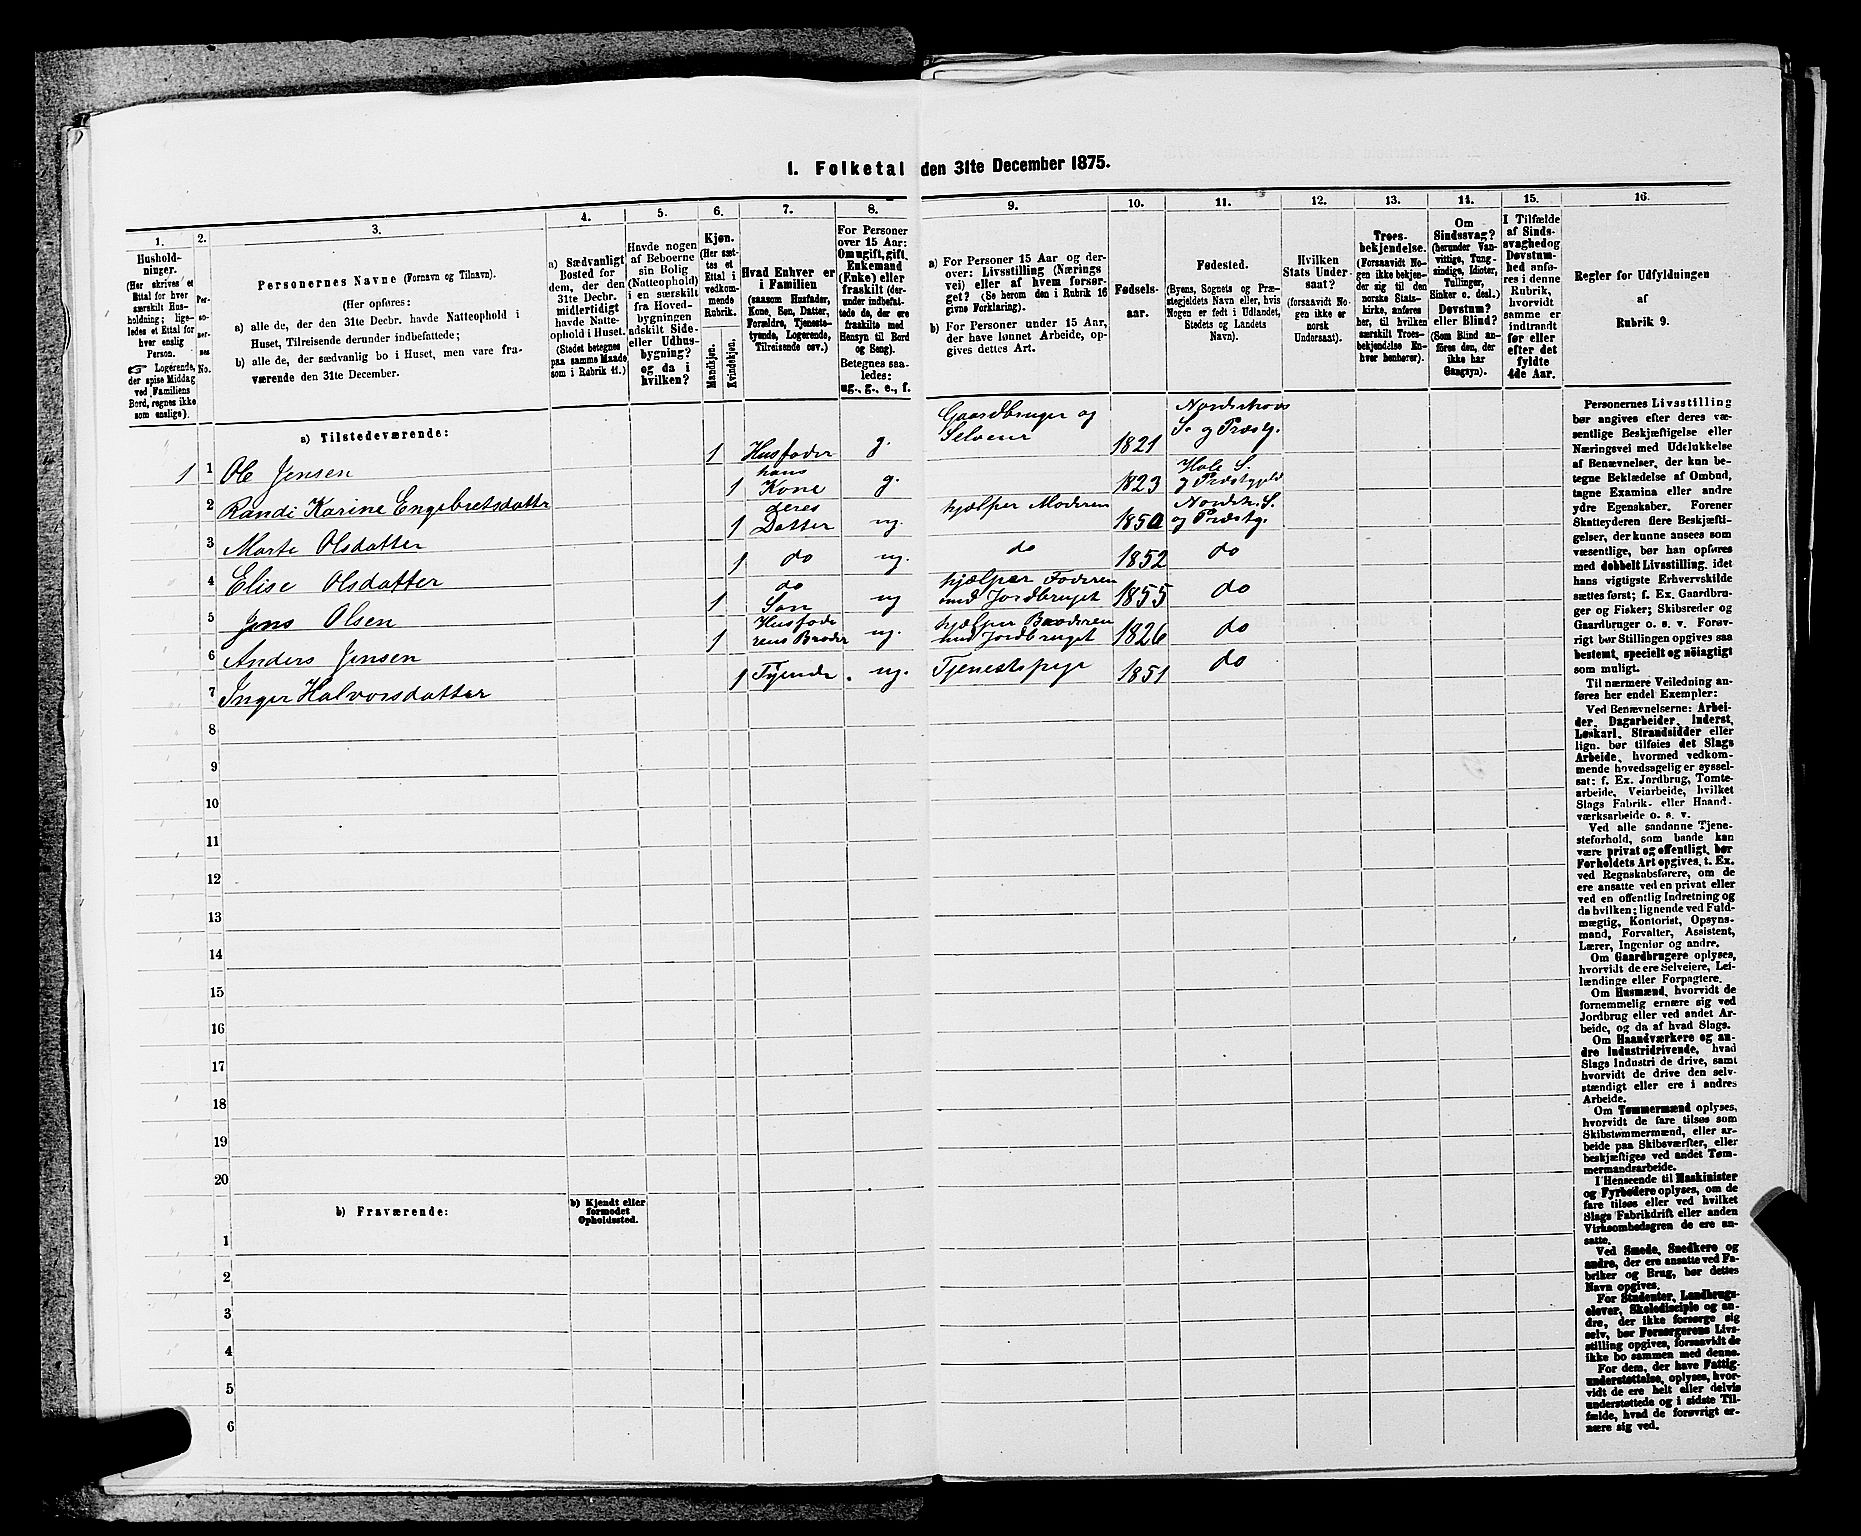 I. Folketal den 31te December 1875.
1.
Husholdninger.
(Her skrives et
Ettal for hver
særskilt Hus-
holdning; lige-
ledes et Ettal for
hver enslig
Person.
☞ Logerende,
der spise Middag
ved Familiens
Bord, regnes ikke
som enslige).
2.
Per-
so-
ner-
nes
No.
3.
Personernes Navne (Fornavn og Tilnavn).
(Her opføres:
a) alle de, der den 31te Decbr. havde Natteophold i
Huset, Tilreisende derunder indbefattede;
b) alle de, der sædvanlig bo i Huset, men vare fra-
værende den 31te December.
4.
a) Sædvanligt
Bosted for
dem, der den
31te Decbr.
midlertidigt
havde Natte-
ophold i Huset.
(Stedet betegnes
paa samme Maade
som i Rubrik 11.)
5.
Havde nogen
af Beboerne
sin Bolig
(Natteophold)
i en særskilt
fra Hoved-
bygningen
adskilt Side-
eller Udhus-
bygning?
og da i
hvilken?
6.
Kjøn.
(Her sæt-
tes et
Ettal i
vedkom-
mende
Rubrik.
Mandkjøn.
Kvindekjøn.
7.
Hvad Enhver er
i Familien
(saasom Husfader,
Kone, Søn, Datter,
Forældre, Tjeneste-
tyende, Logerende,
Tilreisende osv.)
8.
For Personer
over 15 Aar:
Om ugift, gift,
Enkemand
(Enke) eller
fraskilt (der-
under indbefat-
tede de, der ere
fraskilte med
Hensyn til Bord
og Seng).
Betegnes saa-
ledes:
ug., g., e., f.
9.
a) For Personer 15 Aar og der-
over: Livsstilling (Nærings
vei) eller af hvem forsør-
get? (Se herom den i Rubrik 16
givne Forklaring).
b) For Personer under 15 Aar,
der have lønnet Arbeide, op-
gives dettes Art.
10.
Fødsels-
aar.
11.
Fødested.
(Byens, Sognets og Præ-
stegjeldets Navn eller, hvis
Nogen er født i Udlandet,
Stedets og Landets
Navn).
12.
Hvilken
Stats Under-
saat?
(forsaavidt No-
gen ikke er
norsk
Undersaat).
13.
Troes-
bekjendelse.
(Forsaavidt No-
gen ikke bekjen-
der sig til den
norske Stats-
kirke, anføres
her, til hvilken
særskilt Troes-
bekjendelse En-
hver henhører).
14.
Om
Sindssvag?
(herunder Van-
vittige, Tung-
sindige, Idioter,
Tullinger,
Sinker o. desl.)
Døvstum?
eller Blind?
(Som Blind an-
føres den, der
ikke har
Gangsyn).
15.
I Tilfælde
af Sinds-
svaghed og
Døvstum-
hed anfø-
res i denne
Rubrik,
hvorvidt
samme er
indtraadt
før eller
efter det
fyldte
4de Aar.
16.
Regler for Udfyldningen
af
Rubrik 9.
a) Tilstedeværende:
1 1 Ole Jensen 1 Husfader g. Gaardbruger og Selveier 1821 Nordrehovs S. og Præstg.
2 Randi Karine Engebretsdatter 1 hans Kone g. 1823 Hole S. og Præstgjeld
3 Marte Olsdatter 1 deres Datter ug. hjælper Moderen 1850 Nordreh. S. og Præstg.
4 Elise Olsdatter 1 do ug. do 1852 do
5 Jens Olsen 1 do Søn ug hjælper Faderen med Jordbruget 1855 do
6 Anders Jensen 1 Husfaderens Broder ug. hjælper Broderen med Jordbruget 1826 do
7 Inger Halvorsdatter 1 Tyende. ug. Tjenestepige 1851 do
8
9
10
11
12
13
14
15
16
17
18
19
20
b) Fraværende:
b) Kjendt eller
formodet
Opholdssted.
1
2
3
4
5
6
Personernes Livsstilling
bør angives efter deres væ-
sentlige Beskjæftigelse eller
Næringsvei med Udelukkelse
af Benævnelser, der kun be-
tegne Beklædelse af Ombud,
tagne Examina eller andre
ydre Egenskaber. Forener
Skatteyderen flere Beskjæfti-
gelser, der kunne ansees som
væsentlige, bør han opføres
med dobbelt Livsstilling, idet
hans vigtigste Erhvervskilde
sættes først; f. Ex. Gaardbru-
ger og Fisker; Skibsreder og
Gaardbruger o. s. v. Forøv-
rigt bør Stillingen opgives saa
bestemt, specielt og nøiagtigt
som muligt.
Til nærmere Veiledning an-
føres her endel Exempler:
Ved Benævnelserne: Arbei-
der, Dagarbeider, Inderst,
Løskarl, Strandsidder eller
lign. bør tilføies det Slags
Arbeide, hvormed vedkom-
mende hovedsagelig er syssel-
sat; f. Ex. Jordbrug, Tomte-
arbeide, Veiarbeide, hvilket
Slags Fabrik- eller Haand-
værksarbeide o. s. v.
Ved alle saadanne Tjene-
steforhold, som baade kan
være privat og offentligt, bør
Forholdets Art opgives, t. Ex.
ved Regnskabsførere, om de
ere ansatte ved en privat eller
ved en offentlig Indretning og
da hvilken; lignende ved Fuld-
mægtig, Kontorist, Opsyns-
mand, Forvalter, Assistent,
Lærer, Ingeniør og andre.
Om Gaardbrugere oplyses,
hvorvidt de ere Selveiere, Lei-
lændinge eller Forpagtere.
Om Husmænd, hvorvidt de
fornemmelig ernære sig ved
Jordbrug eller ved andet Ar-
beide, og da af hvad Slags.
Om Haandværkere og an-
dre Industridrivende, hvad
Slags Industri de drive, samt
hvorvidt de drive den selv-
stændigt eller ere i andres
Arbeide.
Om Tømmermænd oplyses,
hvorvidt de fare tilsøs som
Skibstømmermænd, eller ar-
beide paa Skibsværfter, eller
beskjæftiges ved andet Tøm-
mermandsarbeide.
I Henseende til Maskinister
og Fyrbødere oplyses, om de
fare tilsøs eller ved hvilket
Slags Fabrikdrift eller anden
Virksomhedsgren de ere an-
satte.
Ved Smede, Snedkere og
andre, der ere ansatte ved Fa-
briker og Brug, bør dettes
Navn opgives.
For Studenter, Landbrugs-
elever, Skoledisciple og an-
dre, der ikke forsørge sig
selv, bør Forsørgerens Livs-
stilling opgives, forsaavidt de
ikke bo sammen med denne.
For dem, der have Fattig-
understøttelse, oplyses, hvor-
vidt de ere helt eller delvis
understøttede og i sidste Til-
fælde, hvad de forøvrigt er-
nære sig ved.